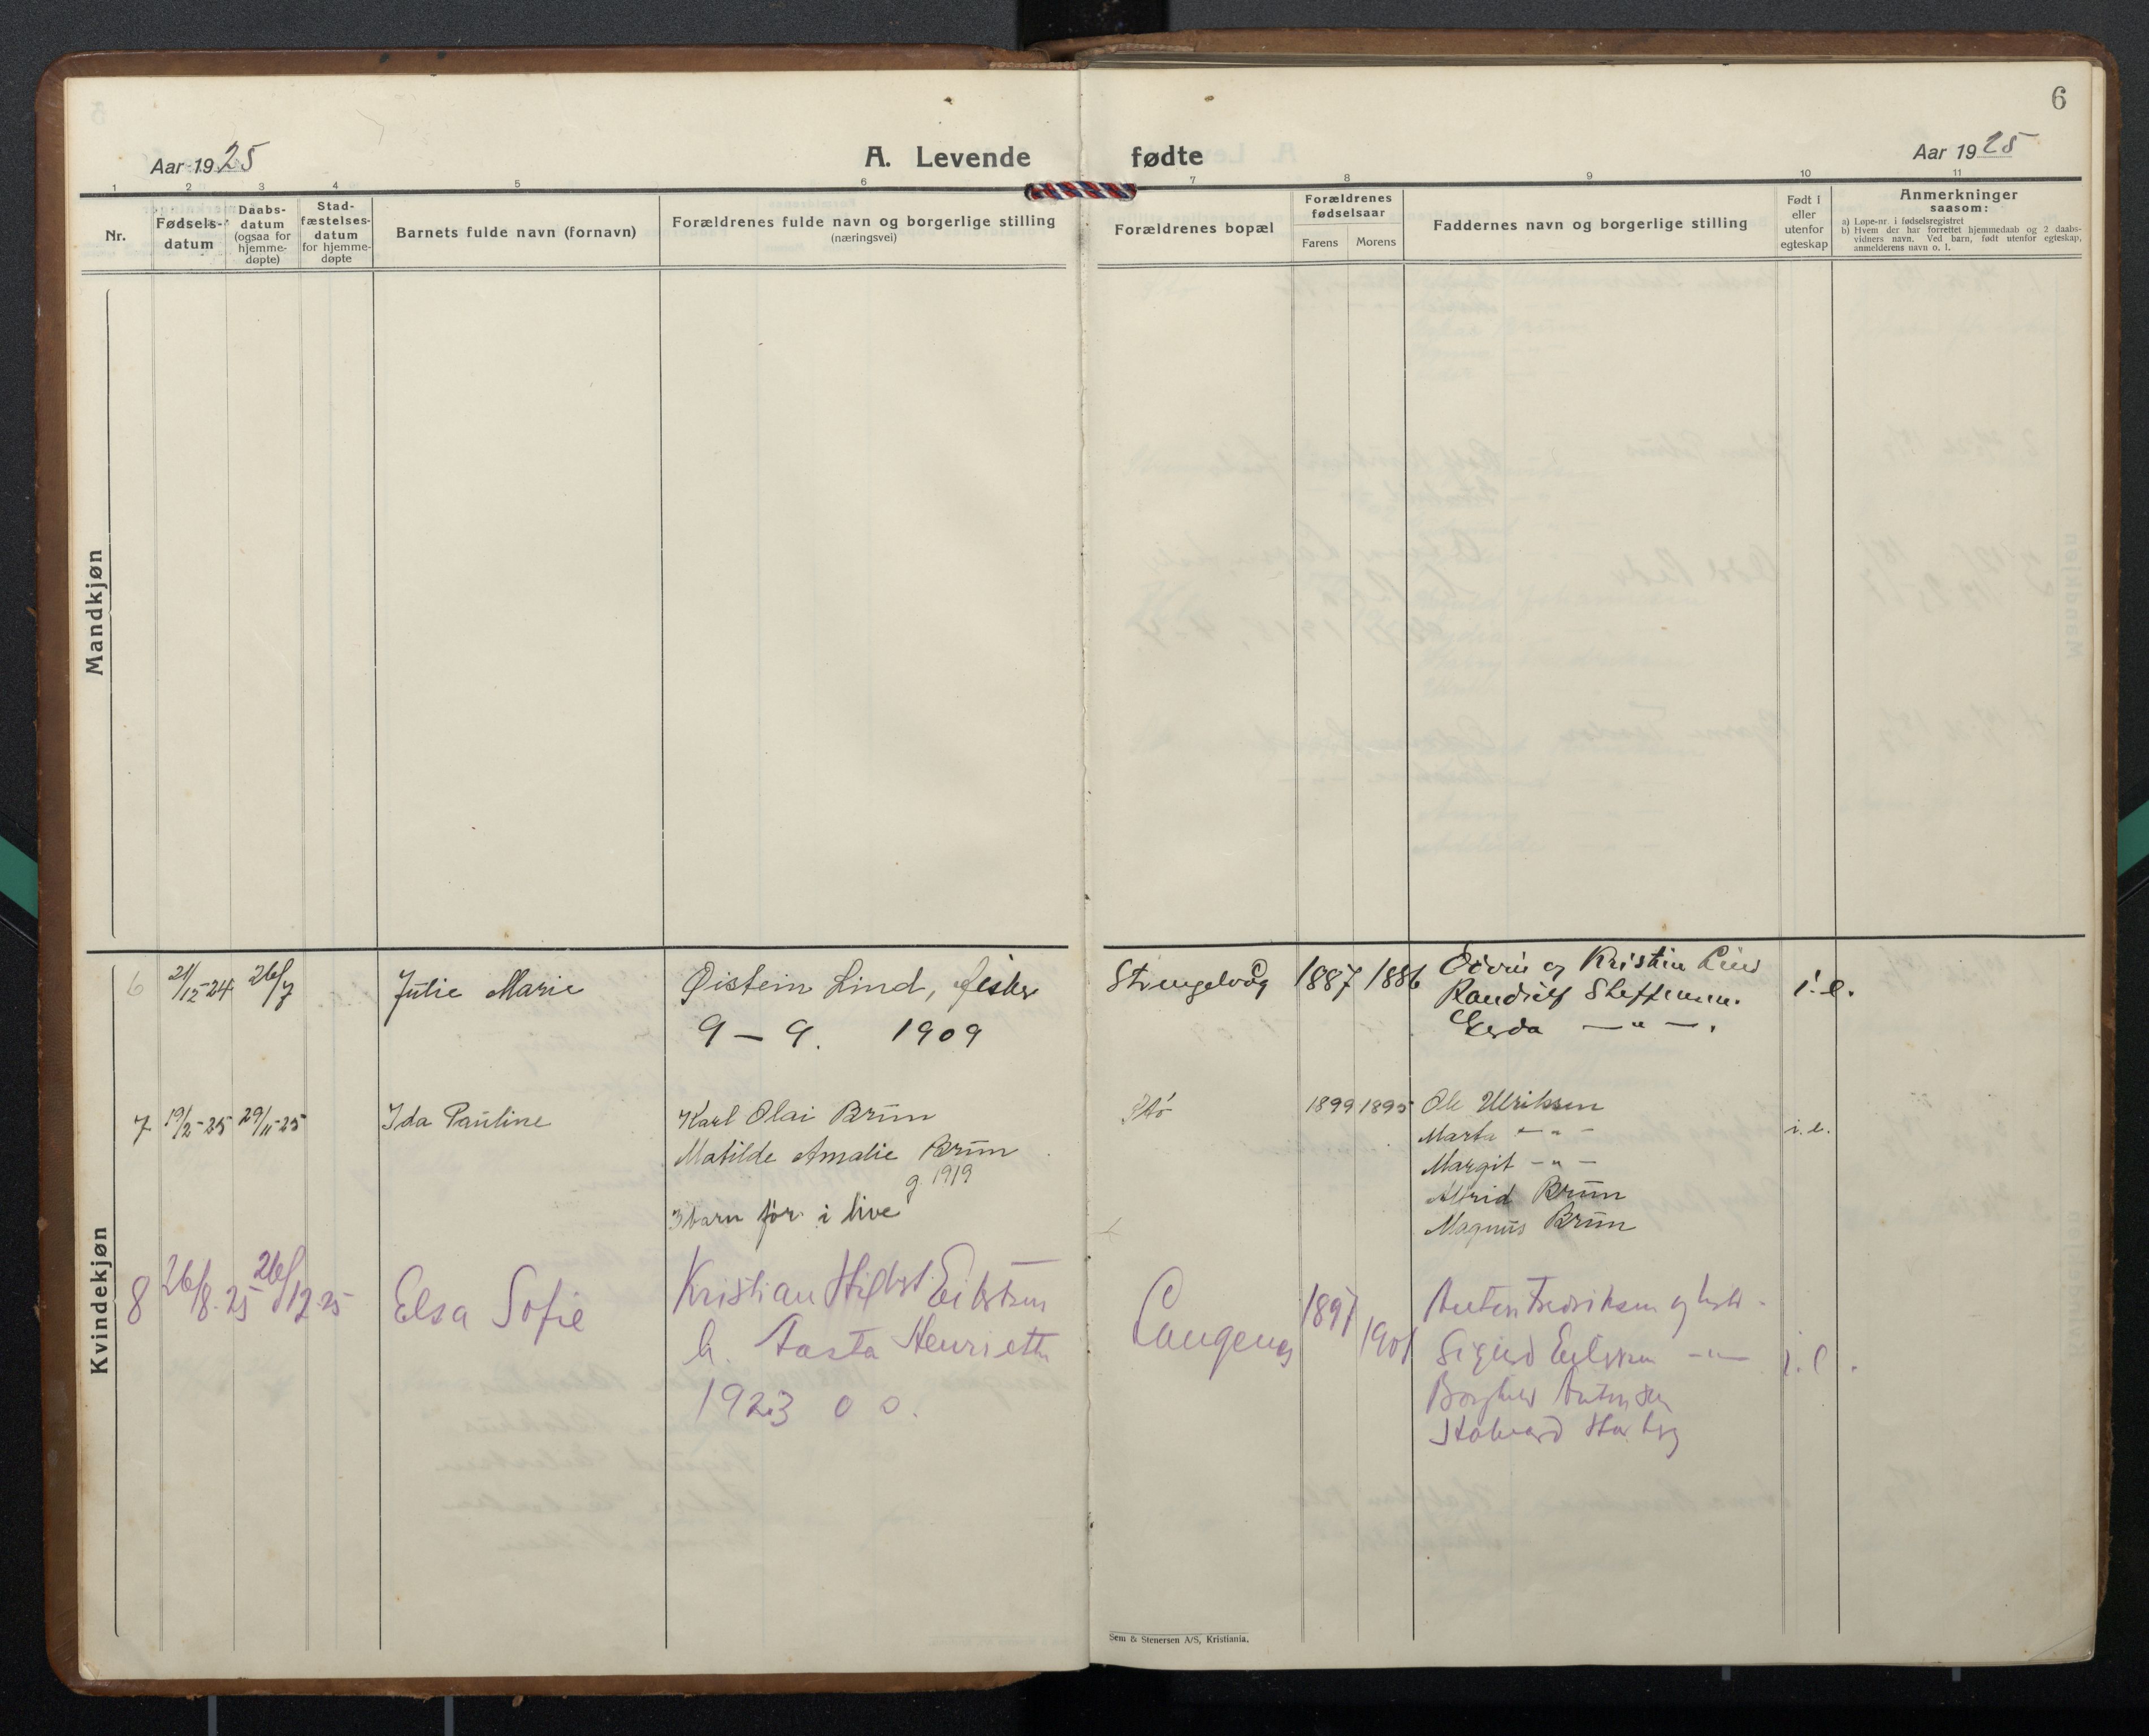 6
Aar 1925
A. Levende fødte
Aar 1925
1 2 3 4 5 6 7 8 9 10 11
Nr.
Fødsels-datum
Daabs-datum (ogsaa for hjemme-døpte)
Stad-fæstelses-datum for hjemme-døpte
Barnets fulde navn (fornavn)
Forældrenes fulde navn og borgerlige stilling
(næringsvei)
Forældrenes bopæl
Forældrenes fødselsaar
Farens Morens
Faddernes navn og borgerlige stilling
Født i eller utenfor egteskap
Anmerkninger
saasom:
a) Løpe-nr. i fødselsregistret
b) Hvem der har forrettet hjemmedaab og 2 daabs-
vidners navn. Ved barn, født utenfor egteskap,
anmelderens navn o. l.
Mandkjøn
Kvindekjøn
6 21/12-24 26/7 Julie Marie Øistein Lind, fisker Strengelvåg 1887 1886 og Kristin i.e.
9 – 9. 1909
Gerda —"—.
7 19/2-25 29/11-25 Ida Pauline Karl Olai Brün Stø 1899 1895 Ole Ulriksen i.e.
Matilde Amalie Brün Marta -"-
g. 1919 Margit -"-
Brün
3 barn før i live Magnus Brün
8 26/8.25 26/12.25 Elsa Sofie Kristian Langenes 1897 1901 Fredriksen og i.e.
h. Aasta Henriette Sigurd —"—
1923 0 0.
Sem & Stenersen A/S, Kristiania.